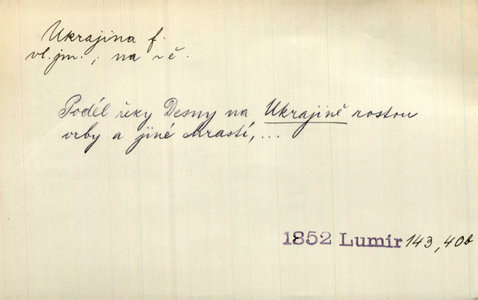 Ukrajina f.
vl. jm.; na ~ě.
Podél řeky Desny na Ukrajině rostou
vrby a jiné chrastí,...
1852 Lumír 143, 40b